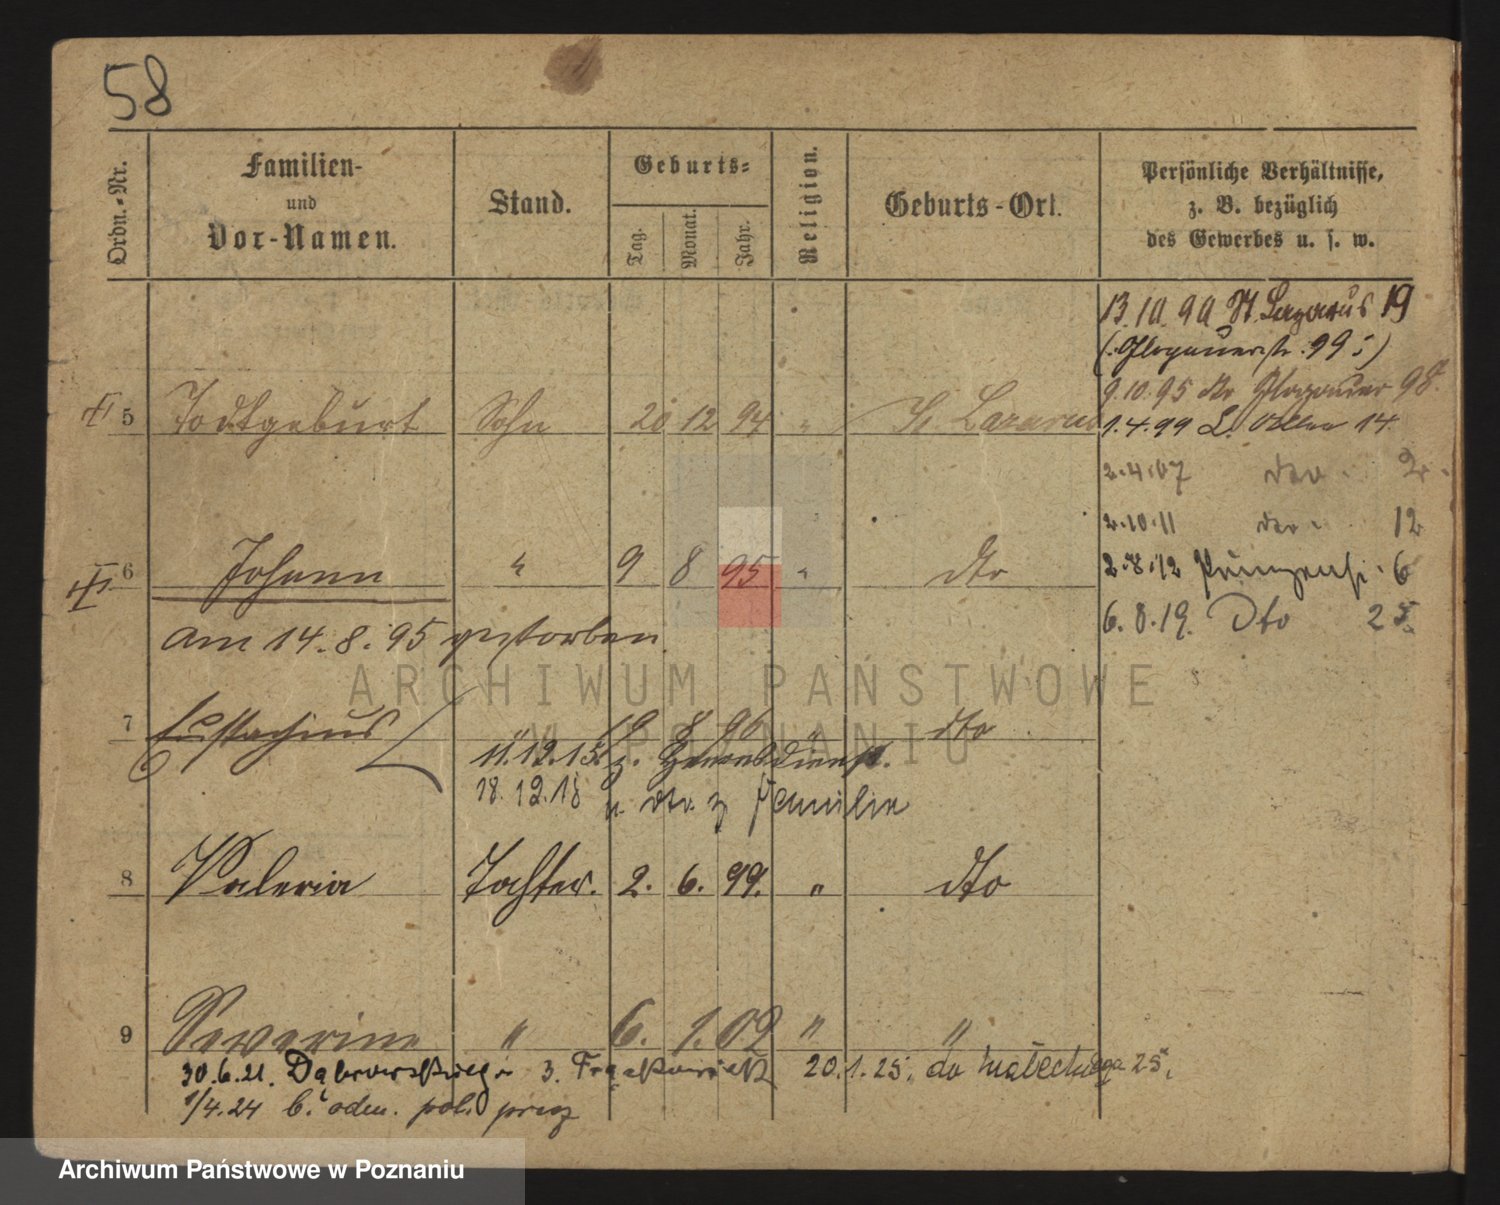 58
Ordn.-Nr.
Familien-
und
Vor-Namen.
Stand.
Geburts-
Tag.
Monat.
Jahr.
Religion.
Geburts-Ort.
Persönliche Verhältnisse,
z. B. bezüglich
des Gewerbes u. s. w.
13.10.90 St. Lazarus 19
(Glogauerstr. 99)
9.10.95 dto Glogauer 98.
5 Todtgeburt Sohn 20 12 94 " St. Lazarus
1.4.99 L. 14
2.4.07 2.
2.10.11 12
6 Johann " 9 8 95 " dto
2.8.12 Prinzenstr. 6
am 14.8.95 gestorben
6.8.19. Dto 25.
ARCHIWUM PAŃSTWOWE
W POZNANIU
7 Eustachius " 19 8 96 " dto
11.12.15 z. Heeresdienst.
18.12.18 v. dto z Familie
8 Valeria Tochter. 2. 6. 99. " dto
9 Severine " 6. 1. 02 " "
30.6.21. Dąbrowskiego 3. Frąckowiak 20.1.25. do 25.
1/4.24 b. oden. pol. prez
Archiwum Państwowe w Poznaniu